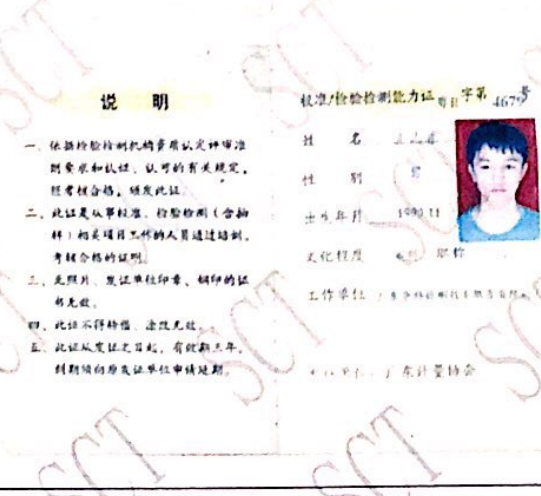 说 明
一、依据检验检测机构资质认定评审准
则要求和认证、认可的有关规定，
经考核合格，颁发此证。
二、此证是从事校准、检验检测（含抽
样）相关项目工作的人员通过培训，
考核合格的证明。
三、无照片、发证单位印章、钢印的证
书无效。
四、此证不得转借、涂改无效。
五、此证从发证之日起，有效期三年，
到期须向原发证单位申请延期。
校准/检验检测能力证 字第 4679号
姓 名
性 别 男
出生年月 1990.11
文化程度 职称
工作单位
广东计量协会
SCT
SCT
SCT
SCT
SCT
SCT
SCT